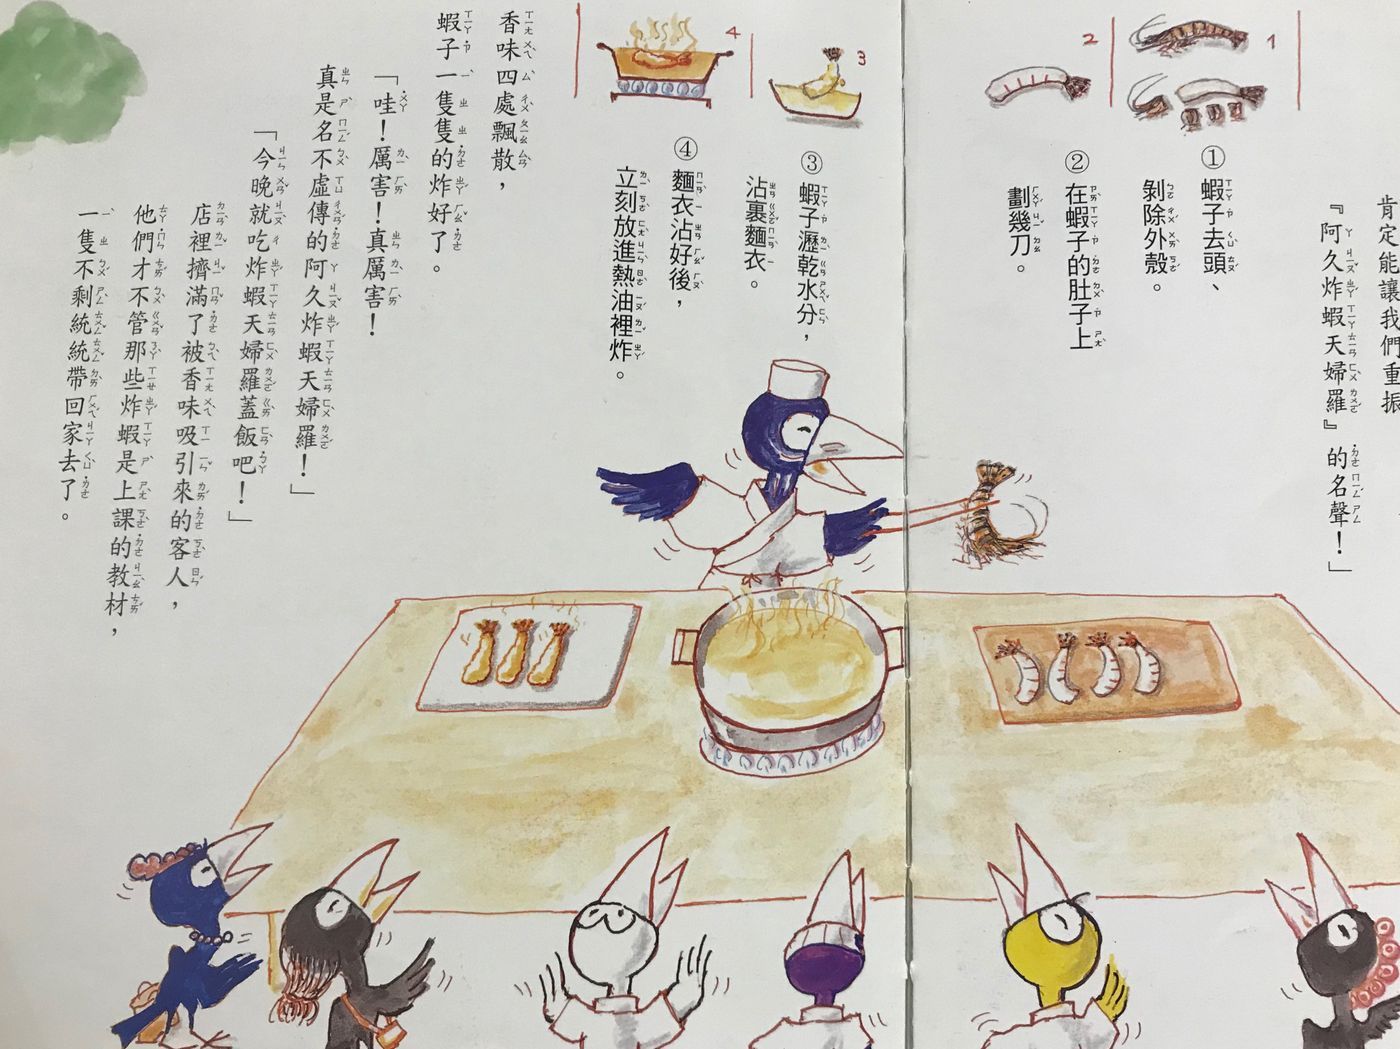 肯定能讓我們重振
『阿久炸蝦天婦羅』的名聲！」
1
①蝦子去頭、
剝除外殼。
2
②在蝦子的肚子上
劃幾刀。
3
③蝦子瀝乾水分，
沾裹麵衣。
4
④麵衣沾好後，
立刻放進熱油裡炸。
香味四處飄散，
蝦子一隻隻的炸好了。
「哇！厲害！真厲害！
真是名不虛傳的阿久炸蝦天婦羅！」
「今晚就吃炸蝦天婦羅蓋飯吧！」
店裡擠滿了被香味吸引來的客人，
他們才不管那些炸蝦是上課的教材，
一隻不剩統統帶回家去了。